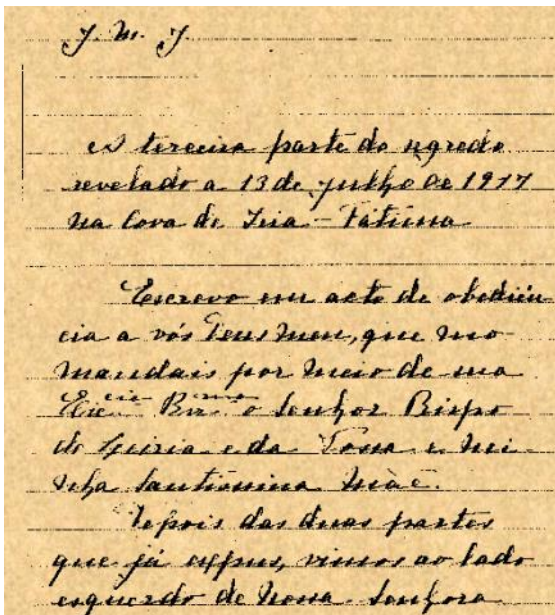 J. M. J.
A terceira parte do segredo
revelado a 13 de julho de 1917
na Cova de Iria - Fátima
Escrevo em acto de obediên-
cia a vós Deus meu, que mo
mandais por meio de sua
Ex.cia Rev.ma o Senhor Bispo
de Leiria e da Vossa e mi-
nha Santíssima Mãe.
Depois das duas partes
que já expus, vimos ao lado
esquerdo de Nossa Senhora